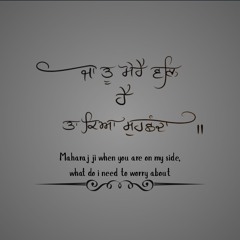 ਜਾ ਤੂ ਮੇਰੈ ਵਲਿ
ਹੈ
ਤਾ ਕਿਆ ਮੁਹਛੰਦਾ ॥
Maharaj ji when you are on my side,
what do i need to worry about